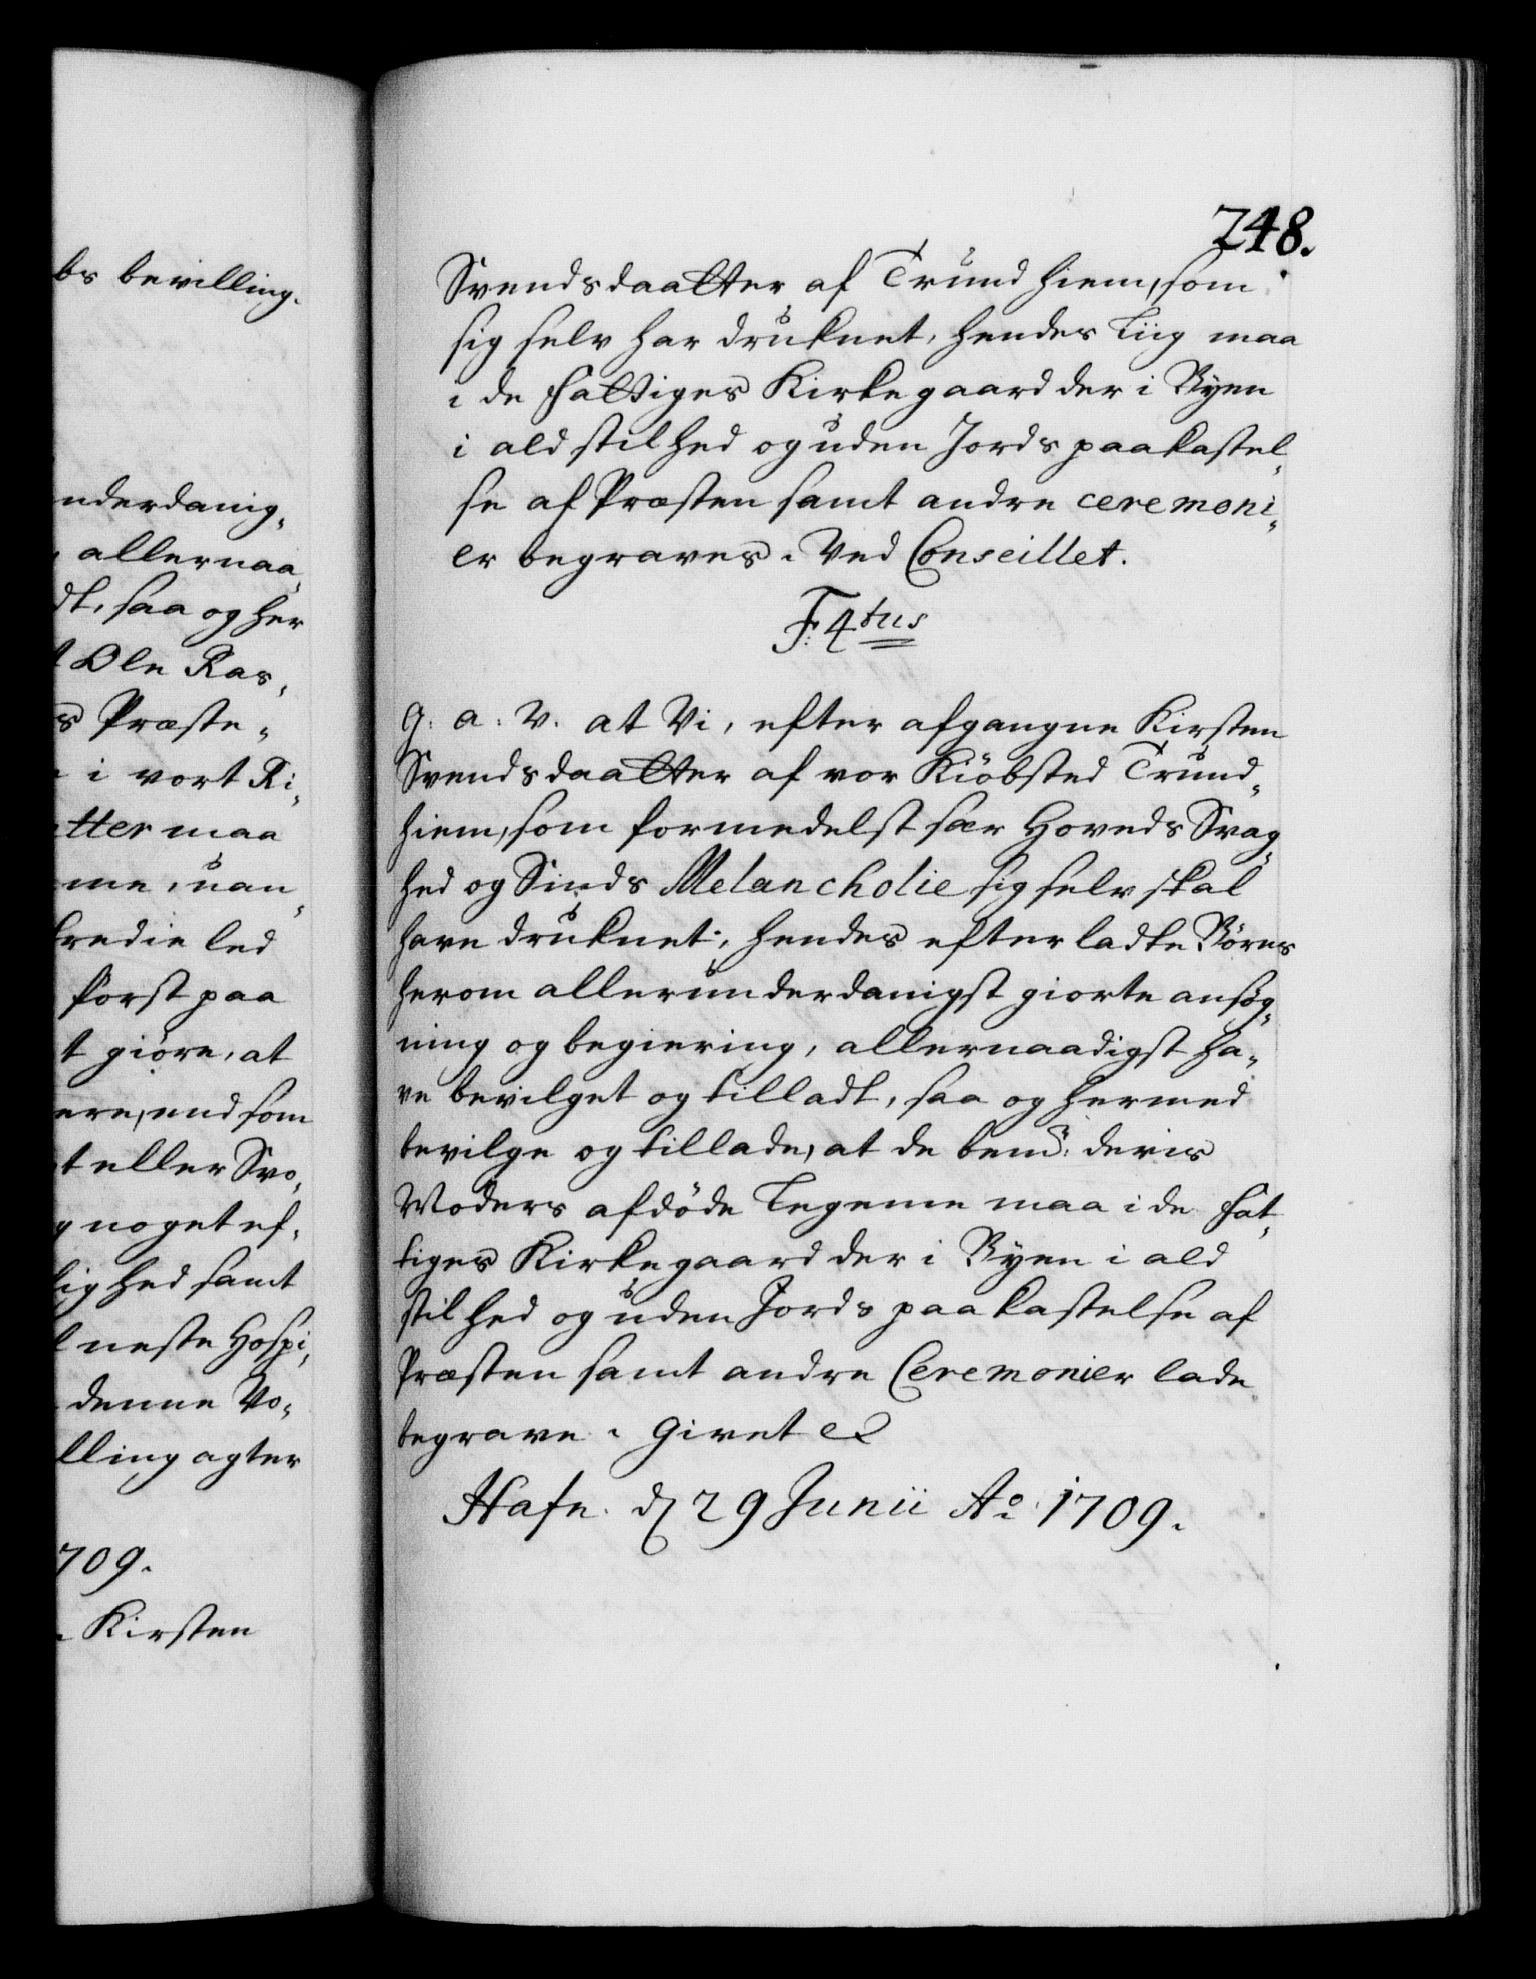 bs bevilling.
nderdanig„
, allernaa„
dt, saa og her
t Ole Ras„
s Præste„
i vort Ri„
tter maa
me, uan„
tredie led
først paa
t giøre, at
ere, end som
t eller Svo„
g noget ef„
lighed samt
l neste Hospi„
denne Vo„
lling agter
709.
Kirsten
248.
Svendsdaatter af Trundhiem, som
sig selv har druknet, hendes Liig maa
i de Fattiges Kirkegaard der i Byen
i ald stilhed og uden Jords paakastel„
se af Præsten samt andre ceremoni„
er begraves. Ved Conseillet.
F: 4tus
G: A: V. at Vi, efter afgangne Kirsten
Svendsdaatter af vor Kiøbsted Trund„
hiem, som formedelst svær Hoveds Svag„
hed og Sinds Melancholie sig selv skal
have druknet, hendes efterladte Børns
herom allerunderdanigst giorte ansøg„
ning og begiering, allernaadigst ha„
ve bevilget og tilladt, saa og hermed
bevilge og tillade, at de bemte: deris
Moders afdøde Legeme maa i de Fat„
tiges Kirkegaard der i Byen i ald
stilhed og uden Jords paakastelse af
Præsten samt andre Ceremonier lade
begrave. Givet etc
Hafn. d 29 Junii Ao. 1709.